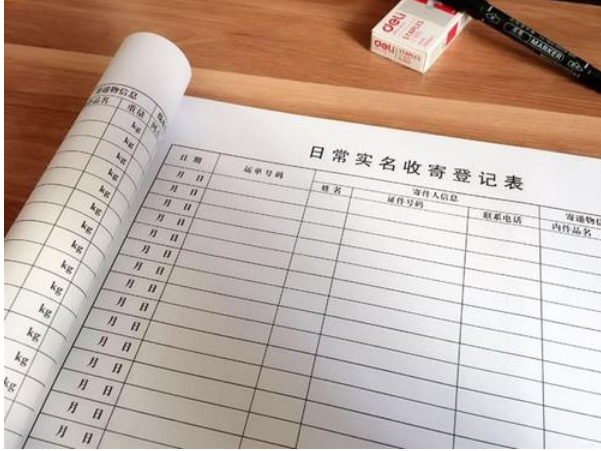 deli
STAPLES
deli
STAPLES
MARKER
寄递物信息
品名 重量
kg
kg
kg
kg
kg
kg
kg
kg
kg
kg
kg
日常实名收寄登记表
日 期 运单号码 寄件人信息 寄递物信
姓 名 证件号码 联系电话 内件品名
月 日
月 日
月 日
月 日
月 日
月 日
月 日
月 日
月 日
月 日
月 日
月 日
月 日